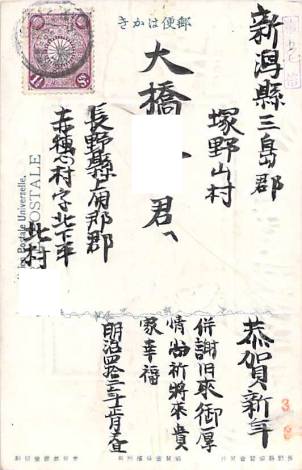 郵便はかき
新潟縣三島郡
塚野山村
大橋
君へ
長野縣上伊那郡
赤穗村字北下平
北村
Union Postale Universelle.
CARTE POSTALE
恭賀新年
併謝旧來御厚
情尚祈將來貴
家幸福
明治四拾三年正月壹日